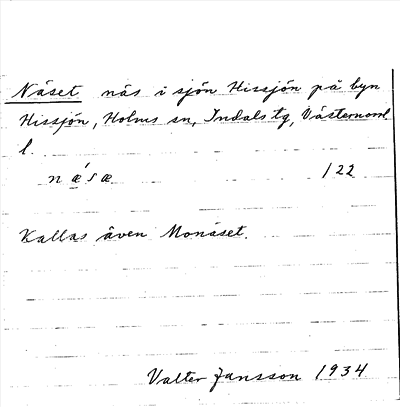 Näset näs i sjön Hissjön på byn
Hissjön, Holms sn, Indals tg, Västernorrl
l.
næ´sæ 122
Kallas även Monäset.
Valter Jansson 1934